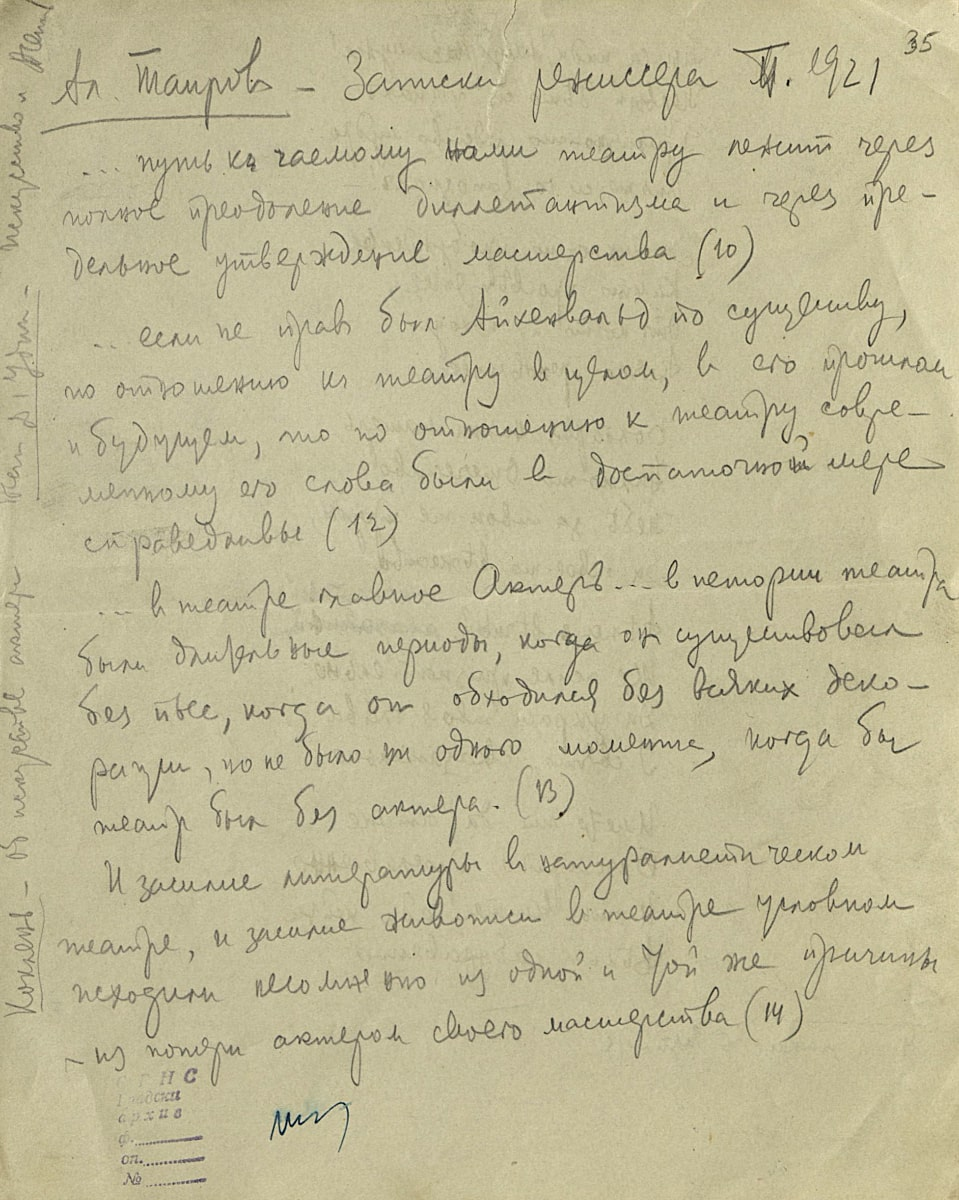 35
Ал. Таиров – Записки режиссера М. 1921
... путь к чаемому нами театру лежит через
полное преодоление диллетантизма и через пре-
дельное утверждение мастерства (10)
... если не прав был Айхенвальд по существу,
по отношению к театру в целом, в его прошлом
и будущем, то по отношению к театру совре-
менному его слова были в достаточной мере
справедливы (12)
... в театре главное Актеръ... в истории театра
были длительные периоды, когда он существовал
без пьес, когда он обходился без всяких деко-
раций, но не было ни одного момента, когда бы
театр был без актера. (13)
И засилие литературы в натуралистическом
театре, и засилие живописи в театре условном
исходили несомненно из одной и той же причины
– из потери актером своего мастерства (14)
Коклен – об искусстве актера
искусство и
НС
Градски
архив
ф.
оп.
№